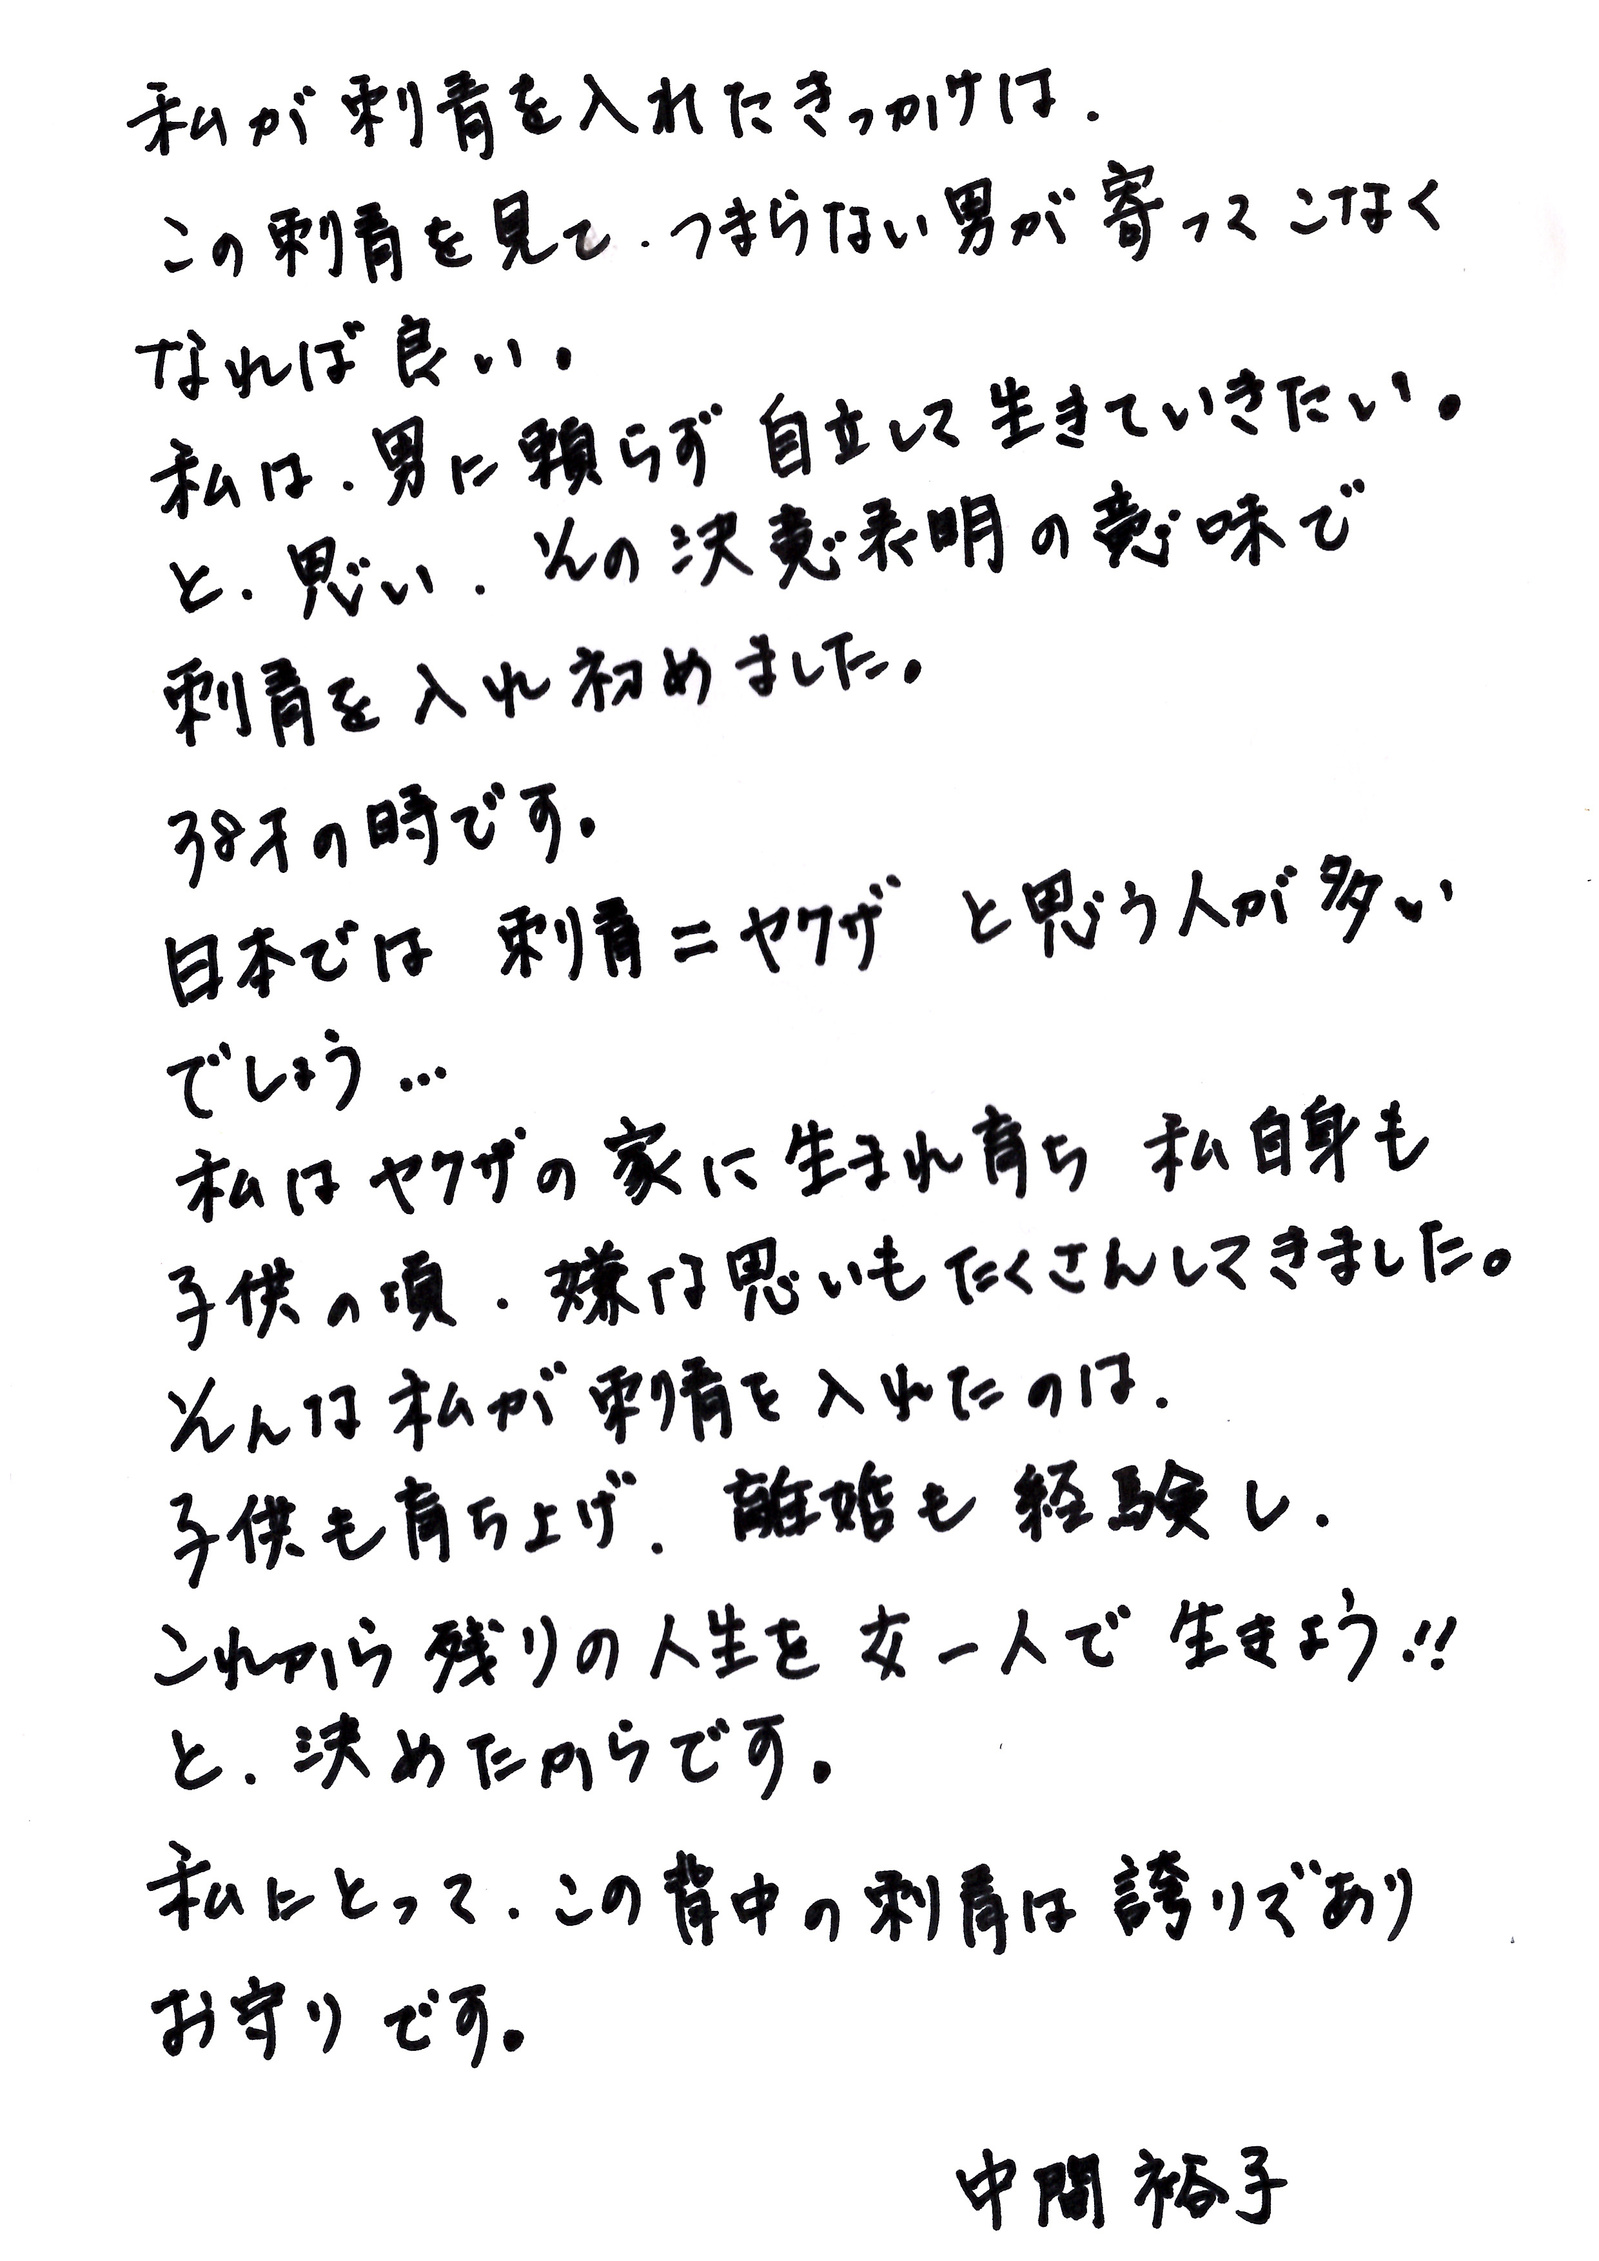 私が刺青を入れたきっかけは.
この刺青を見て.つまらない男が寄ってこなく
なれば良い。
私は.男に頼らず自立して生きていきたい。
と.思い.その決意表明の意味で
刺青を入れ初めました。
38才の時です。
日本では 刺青=ヤクザ と思う人が多い
でしょう…
私はヤクザの家に生まれ育ち 私自身も
子供の頃.嫌な思いもたくさんしてきました。
そんな私が刺青を入れたのは.
子供も育ち上げ.離婚も経験し.
これから残りの人生を女一人で生きよう!!
と.決めたからです。
私にとって.この背中の刺青は誇りであり
お守りです。
中間 裕子